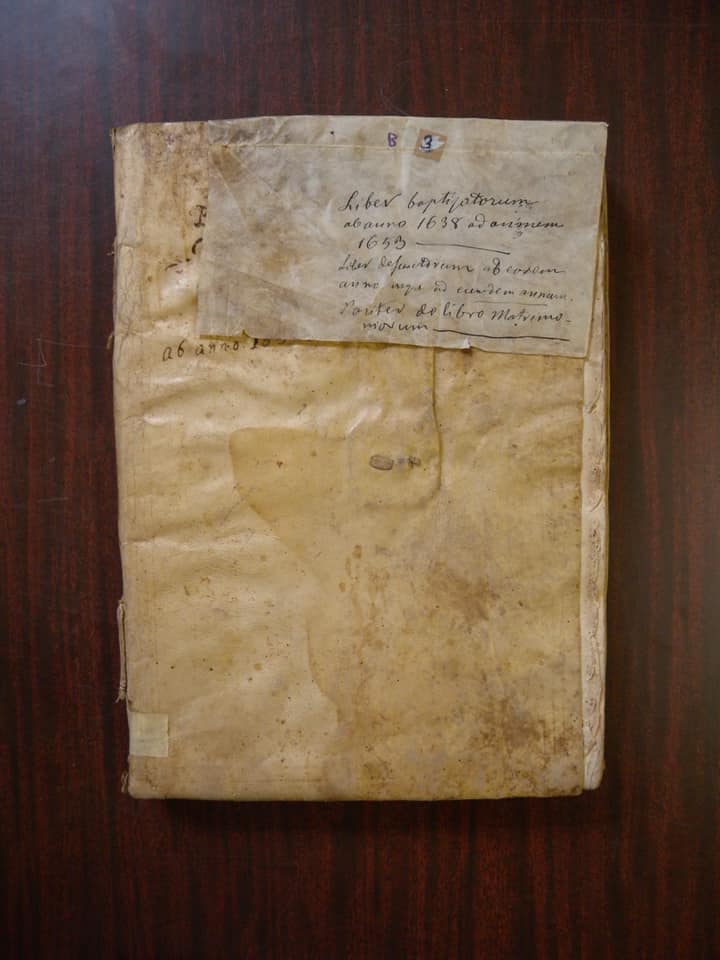 B 3
Liber baptizatorum
ab anno 1638 ad annum
1653
Liber defunctorum ab eodem
anno usque ad eundem annum.
Pariter de libro Matrimo-
niorum
ab anno 16